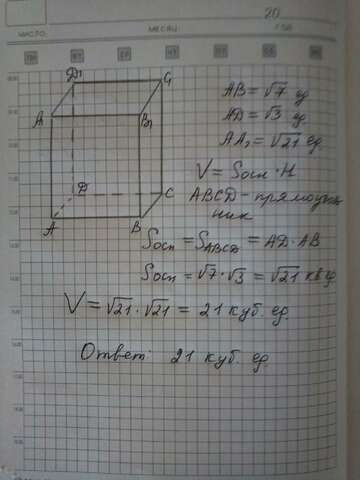 20
число
месяц
год
пн
вт
ср
чт
пт
сб
вс
D₁
C₁
A₁
B₁
D
C
A
B
AB = √7 ед
AD = √3 ед
AA₁ = √21 ед.
V = Sосн · H
ABCD - прямоуголь
ник
Sосн = S_ABCD = AD · AB
Sосн = √7 · √3 = √21 кв ед
V = √21 · √21 = 21 куб. ед.
Ответ: 21 куб. ед.